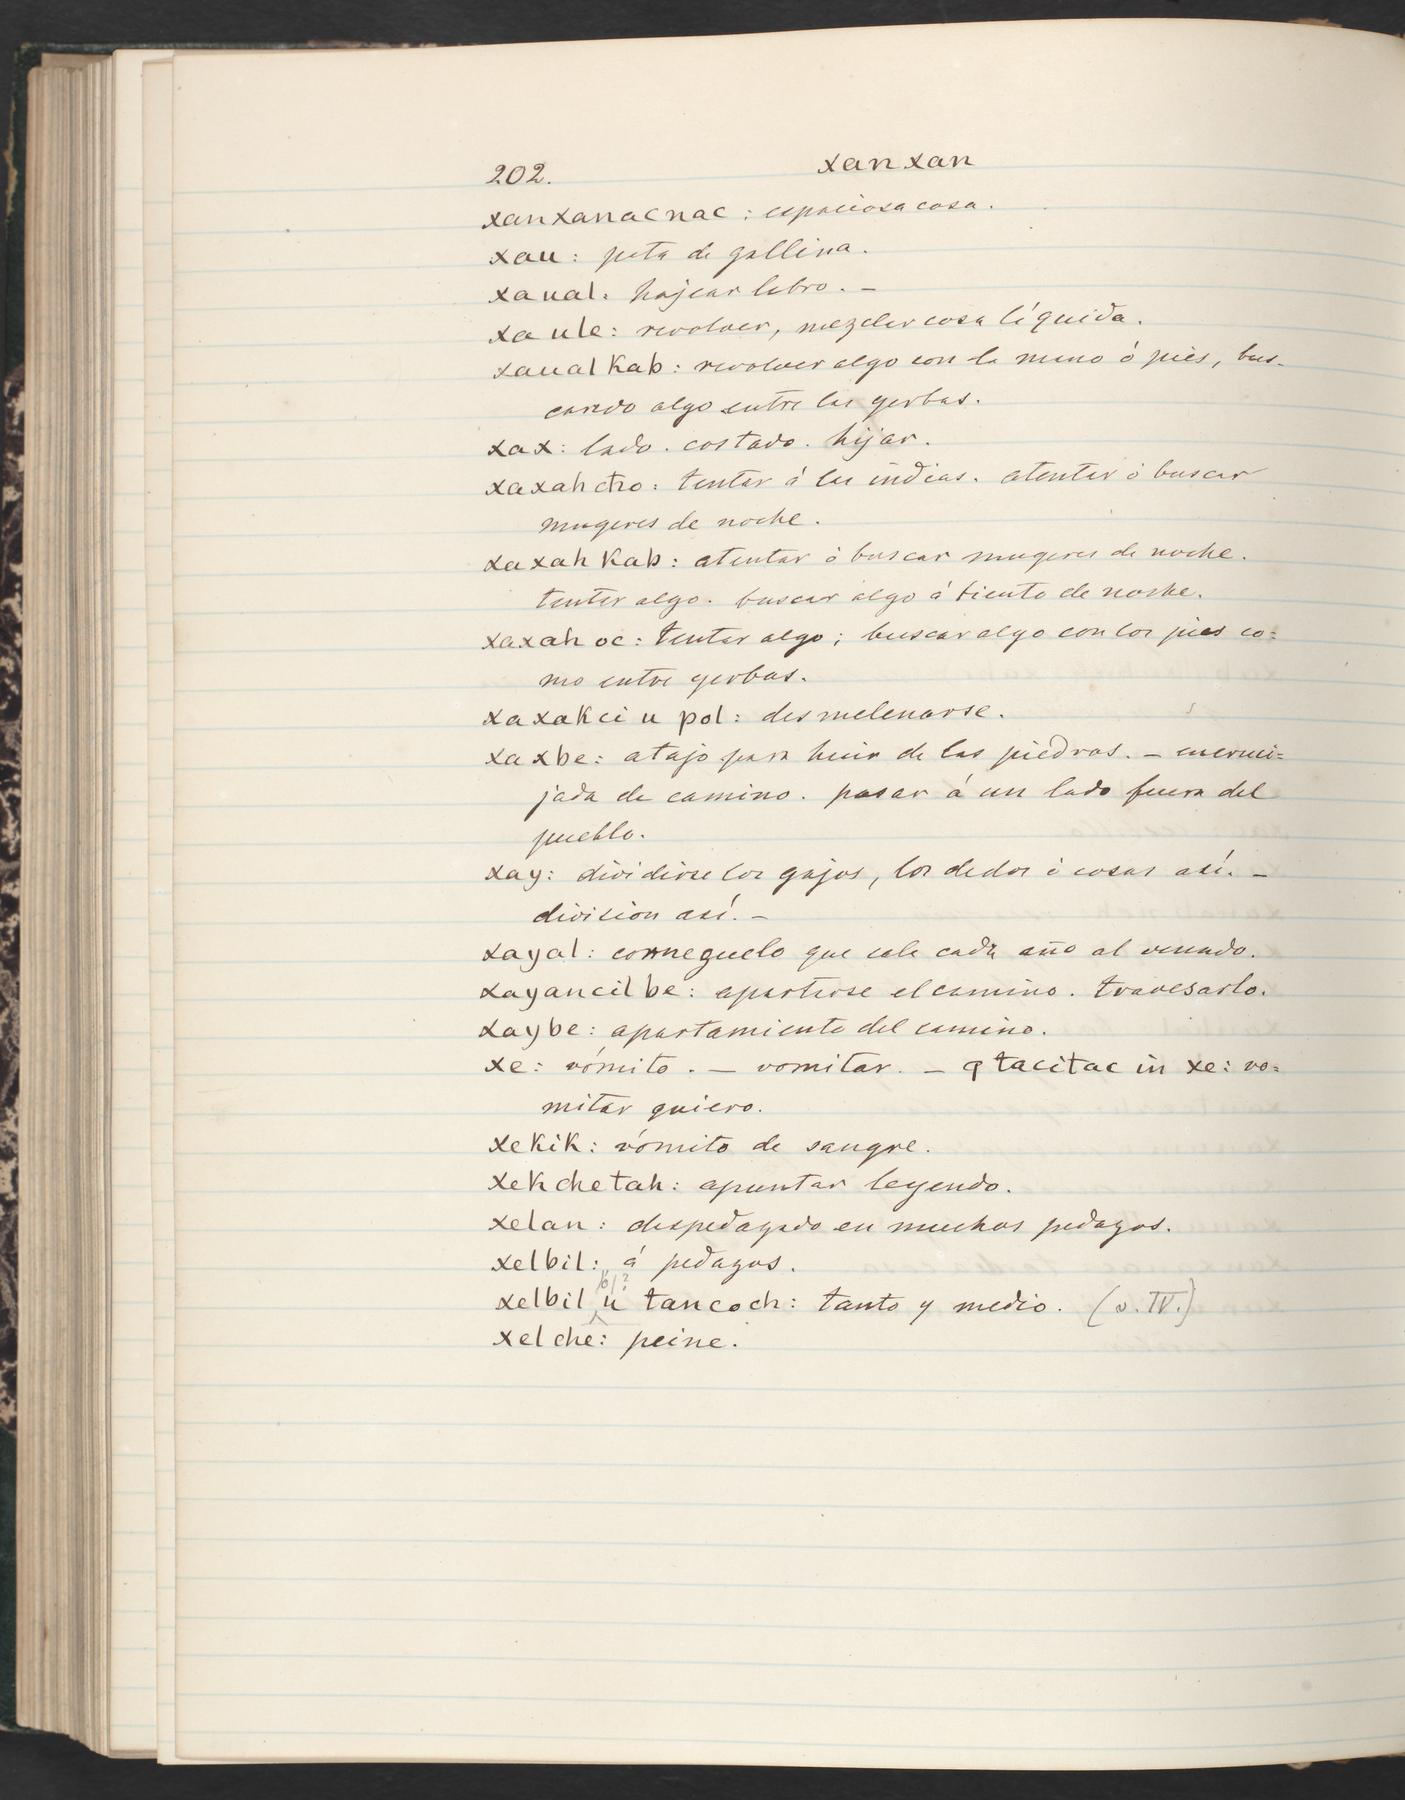 202.
xanxan
xanxanacnac: espaciosa cosa.
xau: pata de gallina.
xaual: hojear libro. –
xaule: revolver, mezclar cosa líquida.
xaual kab: revolver algo con la mano ó piés, bus-
cando algo entre las yerbas.
xax: lado. costado. hijar.
xaxah cħo: tentar á las indias. atentar ó buscar
mugeres de noche.
xaxah kab: atentar ó buscar mugeres de noche.
tentar algo. buscar algo á tiento de noche.
xaxah oc: tentar algo; buscar algo con los pies co=
mo entre yerbas.
xaxakci u pol: desmelenarse.
xaxbe: atajo para huir de las piedras. – encruci=
jada de camino. pasar á un lado fuera del
pueblo.
xay: dividirse los gajos, los dedos ó cosas así. –
division así. –
xayal: corneguelo que sale cada año al venado.
xayancil be: apartarse el camino. travesarlo.
xaybe: apartamiento del camino.
xe: vómito. – vomitar. – tacitac in xe: vo=
mitar quiero.
xekik: vómito de sangre.
xekchetah: apuntar leyendo.
xelan: despedazado en muchos pedazos.
xelbil: á pedazos.
xelbil u tancoch: tanto y medio. (v. IV.)
xelche: peine.